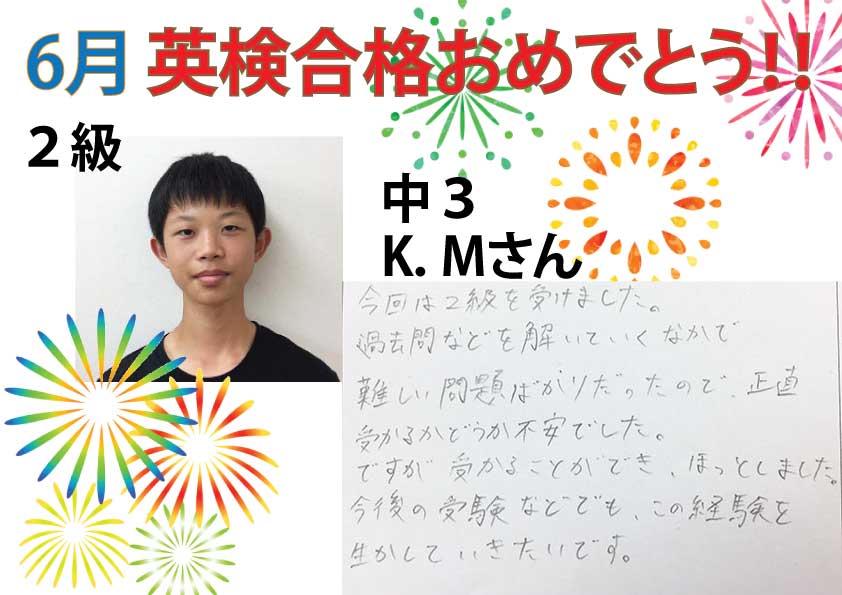 6月 英検合格おめでとう!!
2級
中3
K. Mさん
今回は2級を受けました。
過去問などを解いていくなかで
難しい問題ばかりだったので、正直
受かるかどうか不安でした。
ですが 受かることができ、ほっとしました。
今後の受験などでも、この経験を
生かしていきたいです。